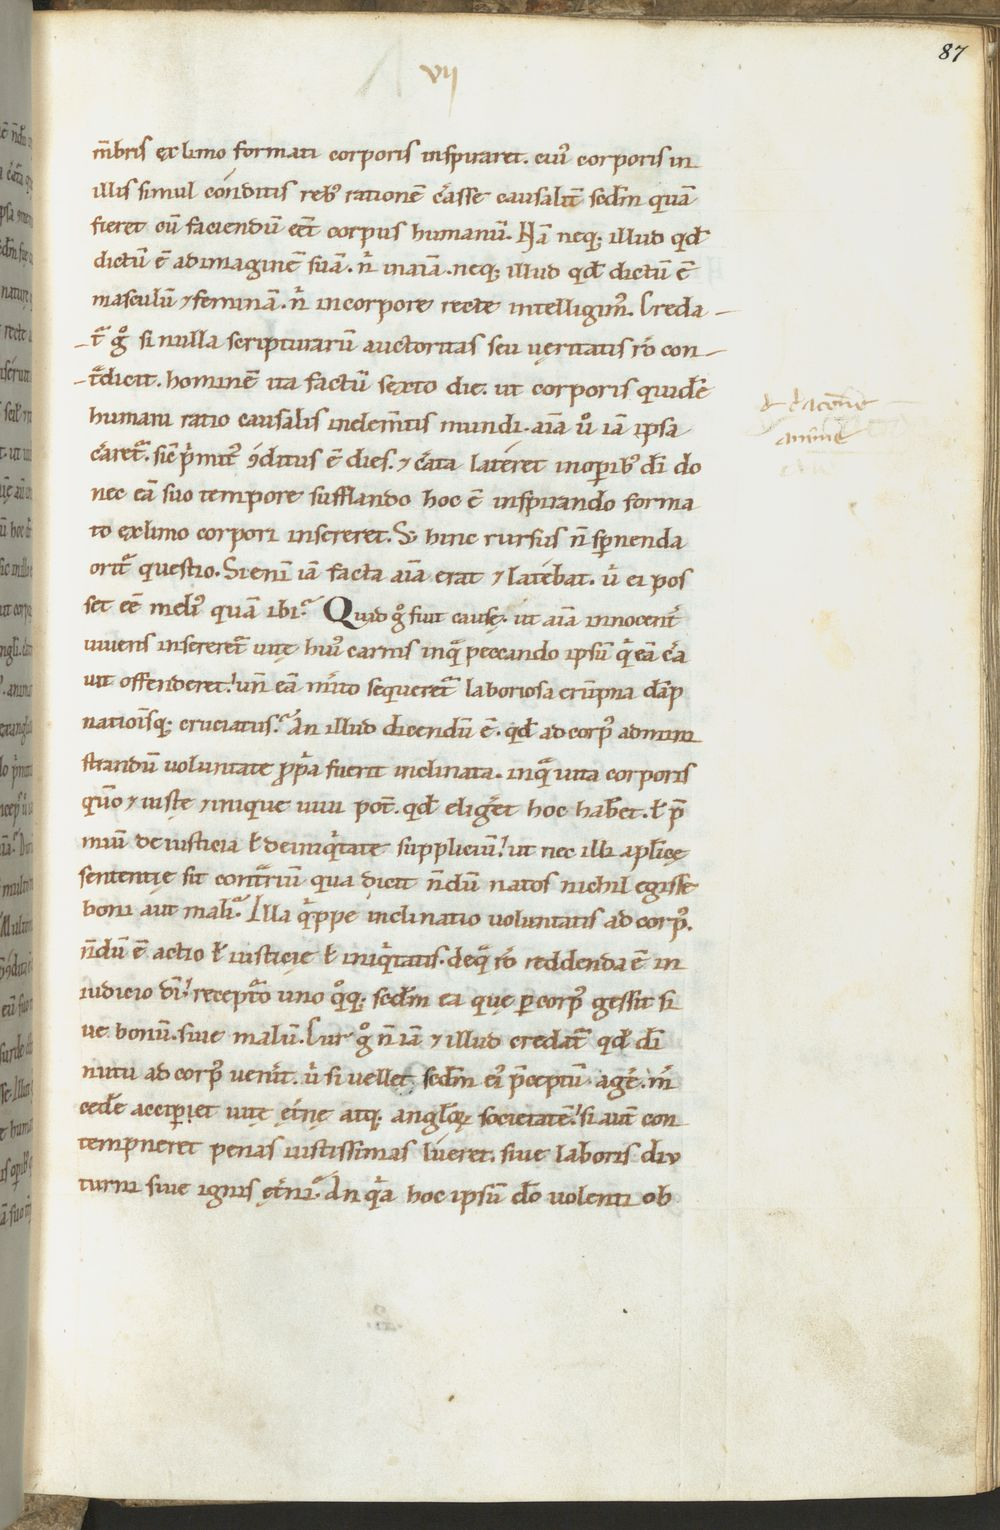 87
vij
m̅bris ex limo formati corporis inspiraret. eiuꝰ corporis in
illis simul conditis rebꝰ rationē c̅asse causalit̅ scdm̅ quā
fieret cū faciendū e̅et corpus humanū. Nā neq; illud qd̅
dictū ē ad imaginē suā. n̅ in aīa. neq; illud qd̅ dictū ē
masculū ⁊ feminā. n̅ in corpore recte intelligimꝰ. Creda
t̅ gͦ si nulla scripturarū auctoritas seu ueritatis rō con
t̅dicit. hominē ita factū sexto die. ut corporis quidē
humani ratio causalis in elem̅tis mundi. aīa ů iā ipsa
c̅aret̅. sic̅ p̅mitꝰ ꝯditus ē dies. ⁊ c̅ata lateret in opibꝰ dī do
nec eā suo tempore sufflando hoc ē inspirando forma
to ex limo corpori insereret. S; hinc rursus n̅ sp̅nenda
orit̅ questio. Si enī iā facta aīa erat ⁊ latebat. u̅ ei pos
set eē meliꝰ quā ibi? Quid gͦ fuit causę. ut aīa innocent̅
uiuens insereret̅ uitę huiꝰ carnis in q̅ peccando ipsū q̅ eā c̅a
uit offenderet! un̅ eā m̅ito sequeret̅ laboriosa erūpna dāp
nationīsq; cruciatus? An illud dicendū ē. qd̅ ad corpꝰ admini
strandū uoluntate p̅pa fuerit inclinata. in q̅ uita corporis
qn̄o ⁊ iuste ⁊ inique uiui pot̅. qd̅ elig̅et hoc hab̅et. ł p̅
miū de iusticia ł de iniq̅tate suppliciū! ut nec illi apl̅icę
sententię sit cont̅riū qua dicit n̅dū natos nichil egisse
boni aut mali? Illa q̅ppe inclinatio uoluntatis ad corpꝰ.
n̅dū ē actio ł iusticię ł iniq̅tatis. de q̅ rō reddenda ē in
iudicio dī! recepto̅ uno qͦq; scdm̅ ea que p corpꝰ gessit si
ue bonū. siue malū. Cur gͦ n̅ iā ⁊ illud credat̅ qd̅ dī
nutu ad corpꝰ uen̅it. u̅ si uellet scdm̅ eiꝰ p̅ceptū ag̅e. m̅
cedē accip̅et uitę et̅nę atq; anglo̅ꝝ societatē! si aut̅ con
tempneret penas iustissimas lueret. siue laboris diu
turni siue ignis et̅ni? An q̅a hoc ipsū dō uolenti ob